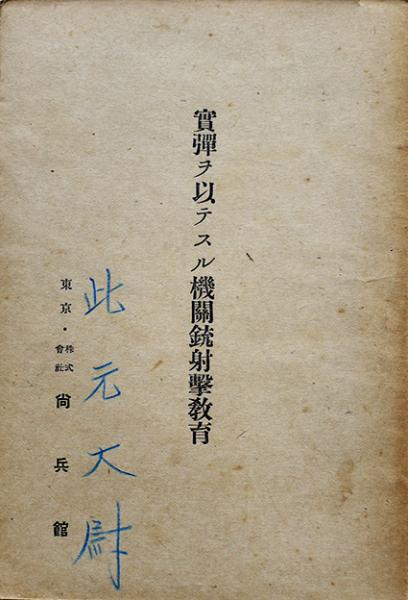 實彈ヲ以テスル機關銃射擊敎育
此元大尉
東京・株式會社尙兵館